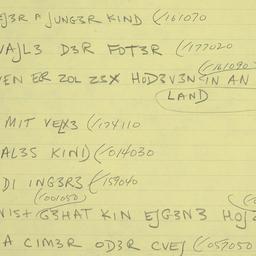 EJ3R A JUNG3R KIND (/161070
VAJL3 D3R FOT3R (/177020
VEN ER ZOL Z3X HOD3V3N IN AN (/161090
LAND
MIT VELX3 (/174110
AL3S KIND (/014030
DI ING3R3 (/159040
(001050)
G3HAT KIN EJG3N3
A CIM3R OD3R CVEJ (/059050